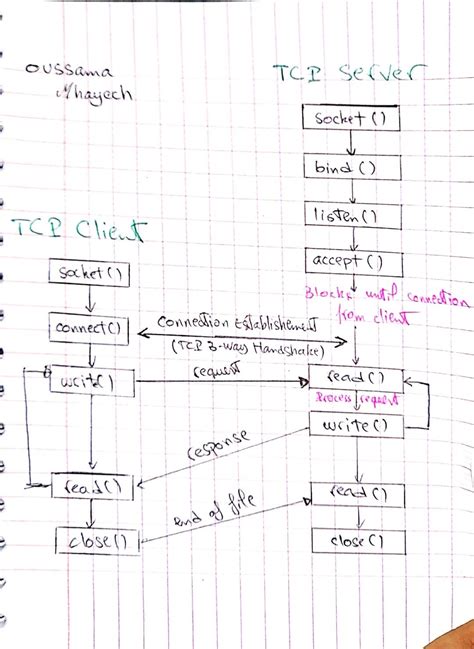 oussama
Mhayech
TCP Server
socket()
bind()
listen()
accept()
Blocks until connection
from client
TCP Client
socket()
connect()
Connection Establishement
(TCP 3-way Handshake)
write()
request
read()
Process request
write()
response
read()
read()
end of file
close()
close()